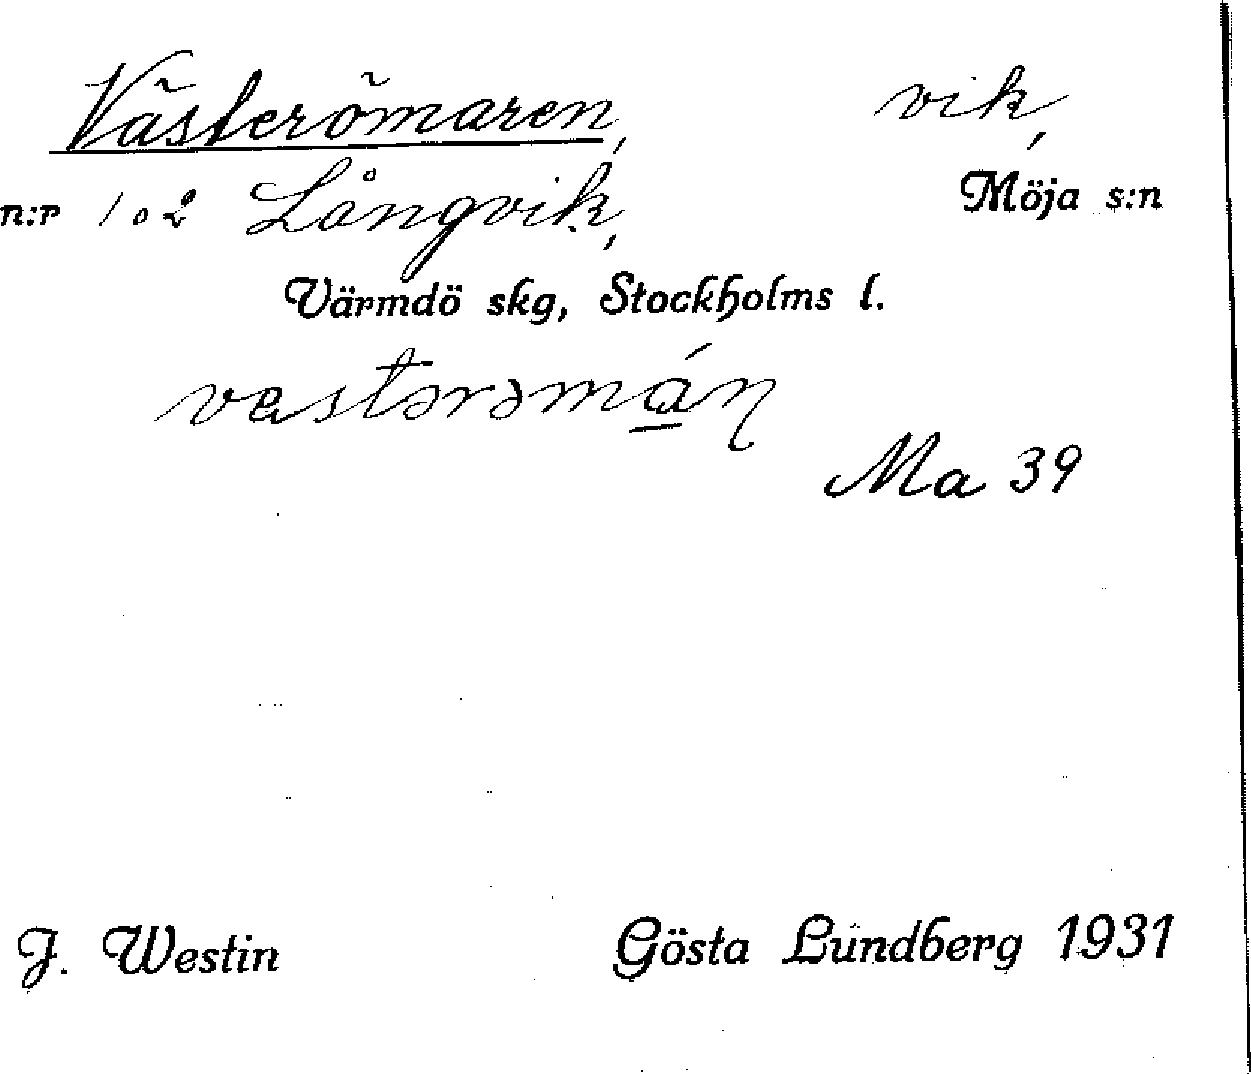 Västerömaren, vik,
n:r 1 o 2 Långvik, Möja s:n
Värmdö skg, Stockholms l.
Ma 39
J. Westin Gösta Lundberg 1931